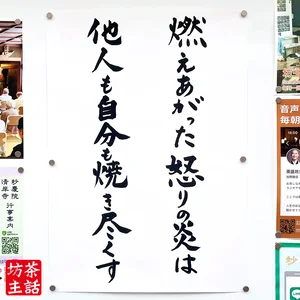 燃えあがった怒りの炎は
他人も自分も焼き尽くす
音声
毎朝
妙慶院
清岸寺
行事案内
妙
茶話
坊主